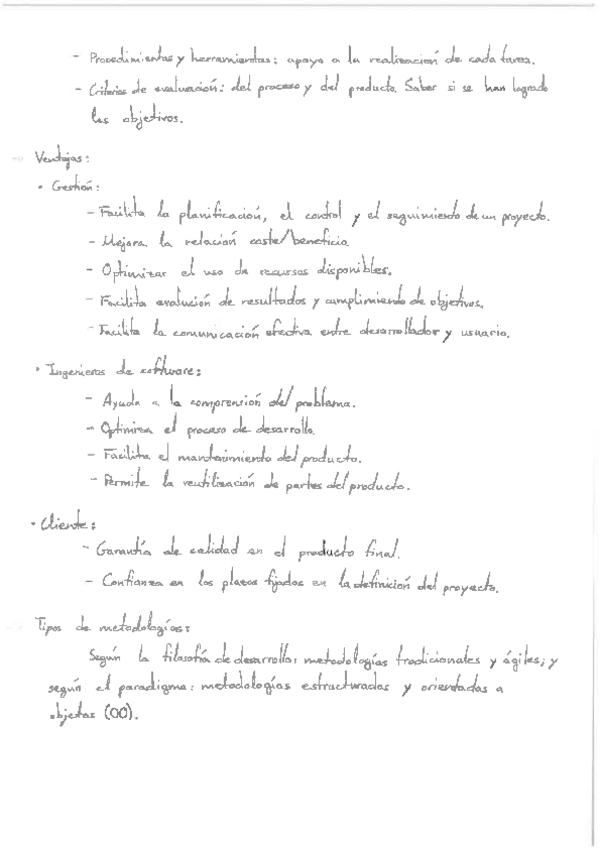 - Procedimientos y herramientas: apoyo a la realización de cada tarea.
- Criterios de evaluación: del proceso y del producto. Saber si se han logrado
los objetivos.
Ventajas:
• Gestión:
- Facilita la planificación, el control y el seguimiento de un proyecto.
- Mejora la relación coste/beneficio
- Optimizar el uso de recursos disponibles.
- Facilita evalución de resultados y cumplimiendo de objetivos.
- Facilita la comunicación efectiva entre desarrollador y usuario.
• Ingenieros de software:
- Ayuda a la comprensión del problema.
- Optimiza el proceso de desarrollo.
- Facilita el mantenimiento del producto.
- Permite la reutilización de partes del producto.
• Cliente:
- Garantía de calidad en el producto final.
- Confianza en los plazos fijados en la definición del proyecto.
Tipos de metodologías:
Según la filosofía de desarrollo: metodologías tradicionales y ágiles; y
según el paradigma: metodologías estructuradas y orientadas a
objetos (OO).